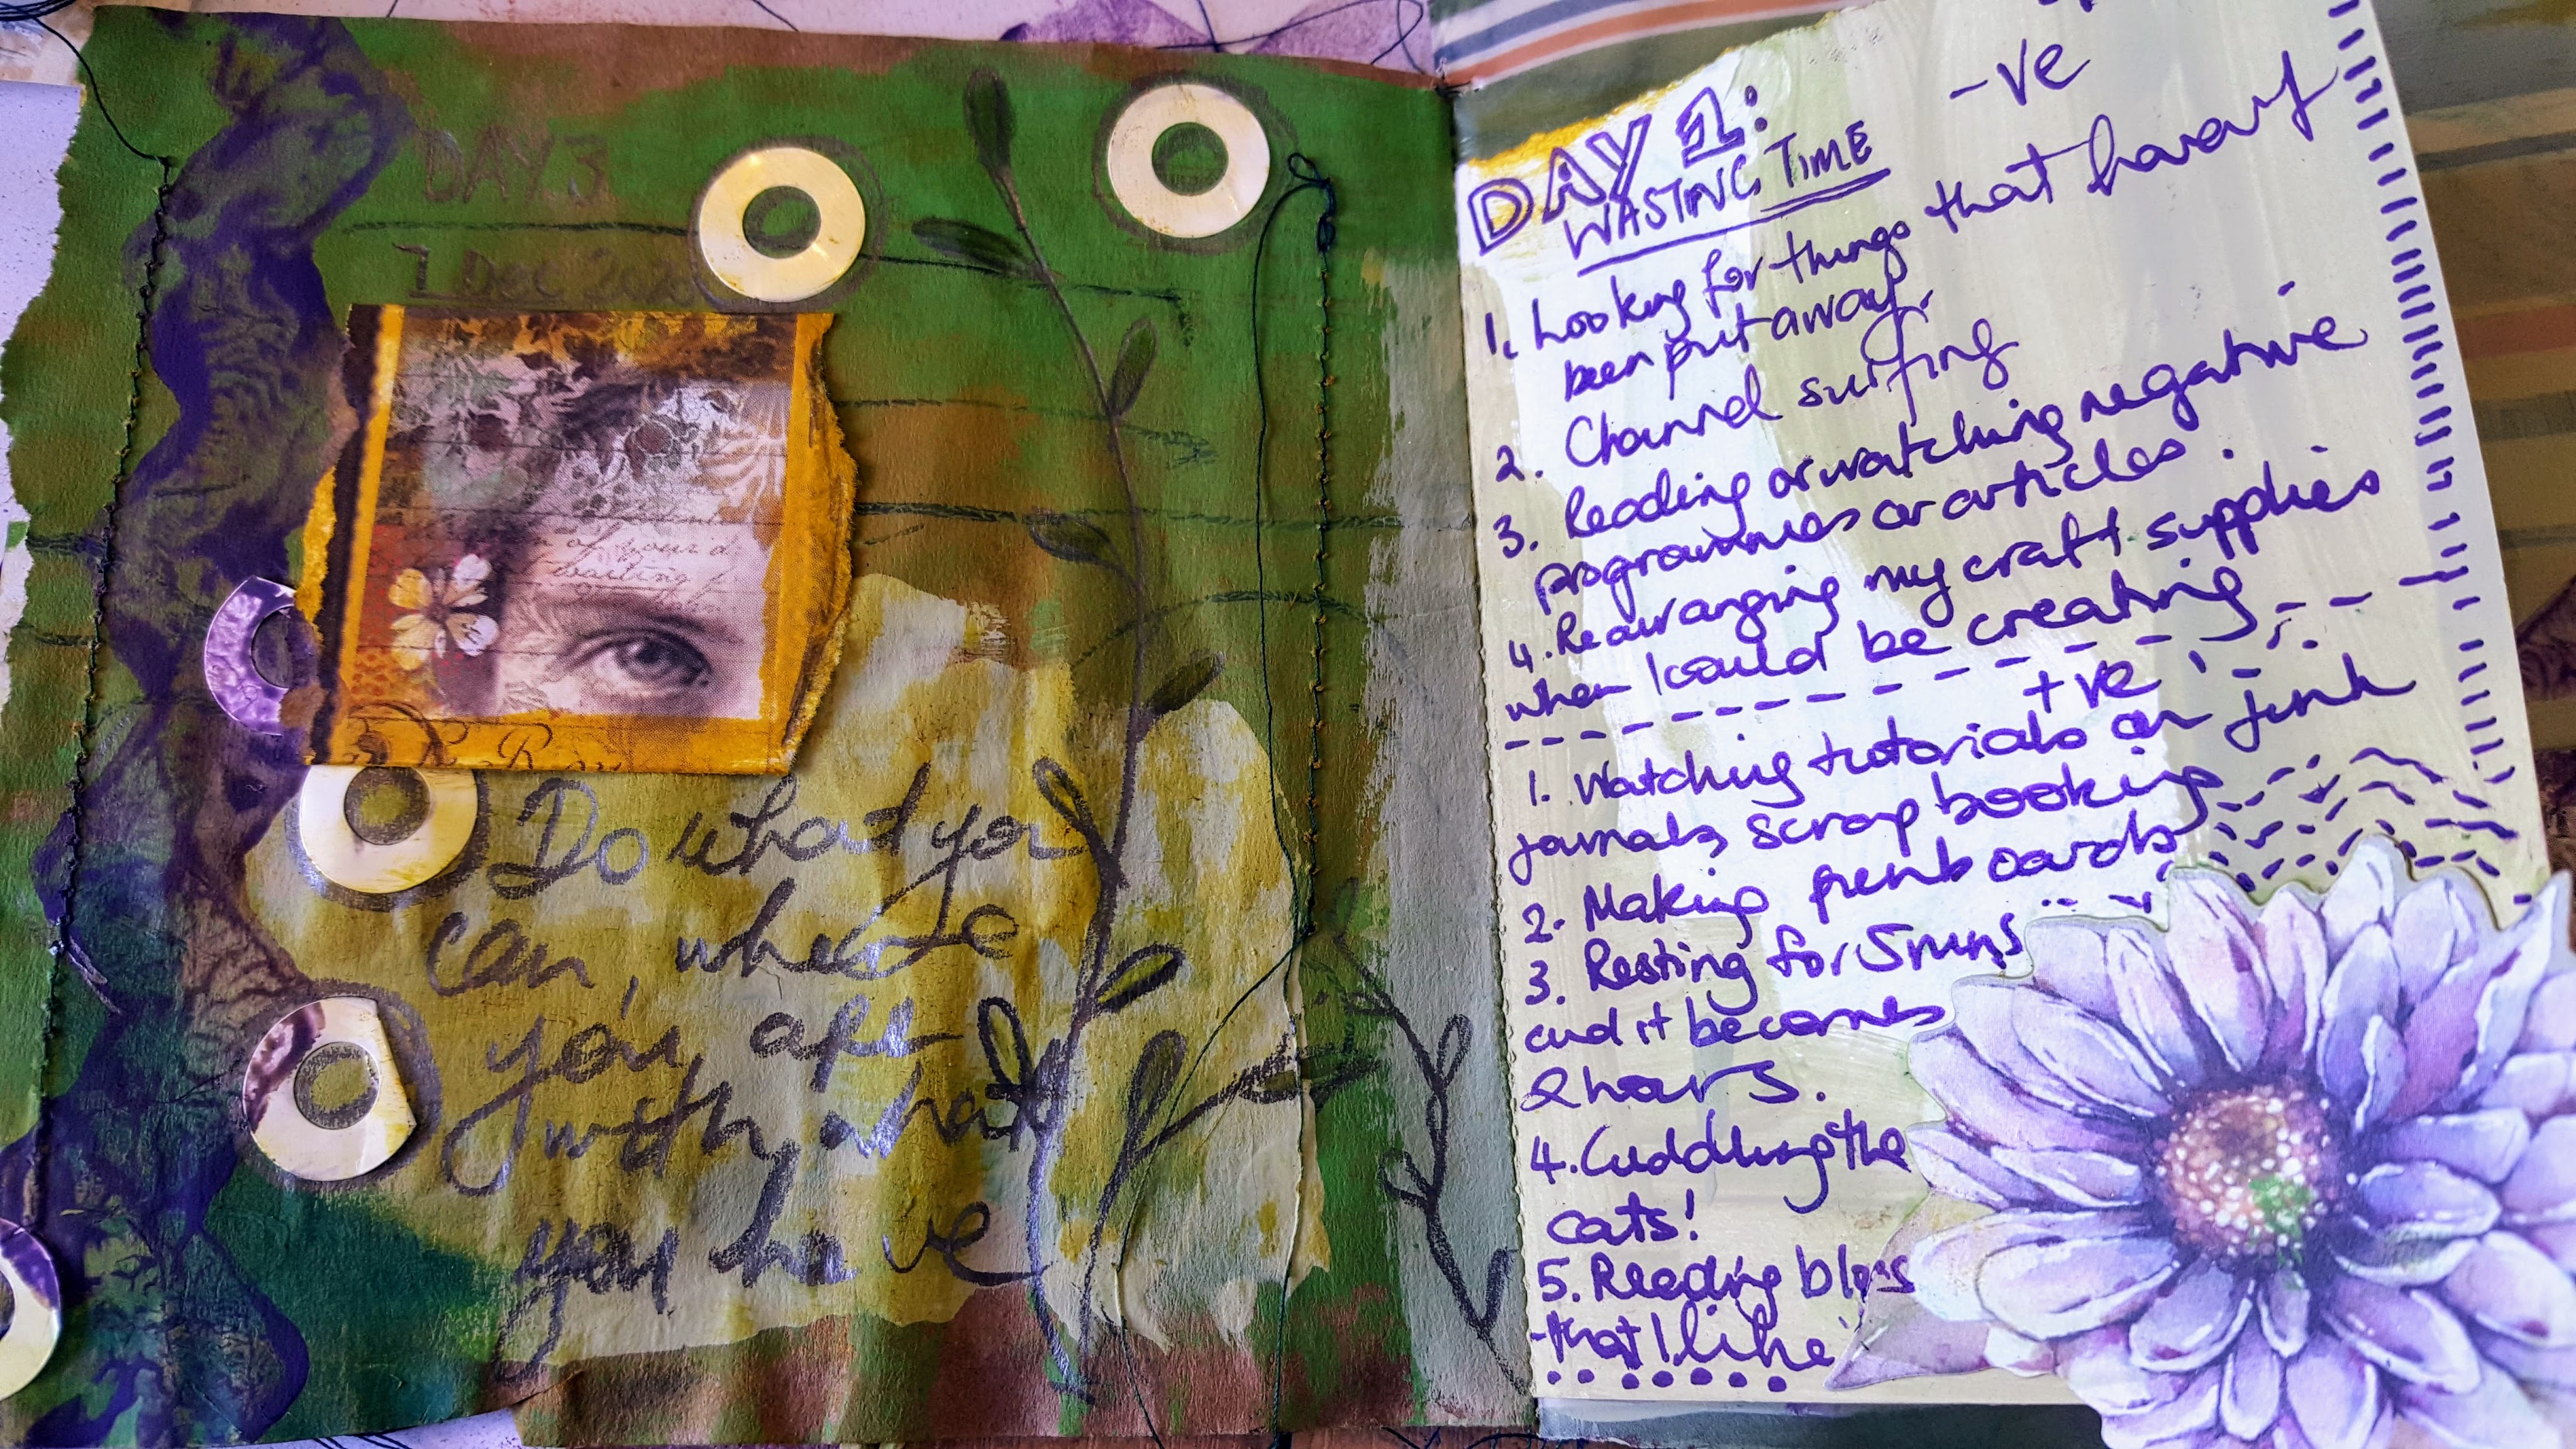 DAY 3
1 Dec 2020
of your d
waiting f
Do what you
can, where
you are
with what
you have
-ve
DAY 1:
WASTING TIME
1. Looking for things that haven't
been put away.
2. Channel surfing
3. Reading or watching negative
programmes or articles.
4. Rearranging my craft supplies
when I could be creating
+ve
1. Watching tutorials on junk
journals, scrap booking
2. Making pen cards
3. Resting for 5 mins
and it becomes
2 hours.
4. Cuddling the
cats!
5. Reading blogs
that I like